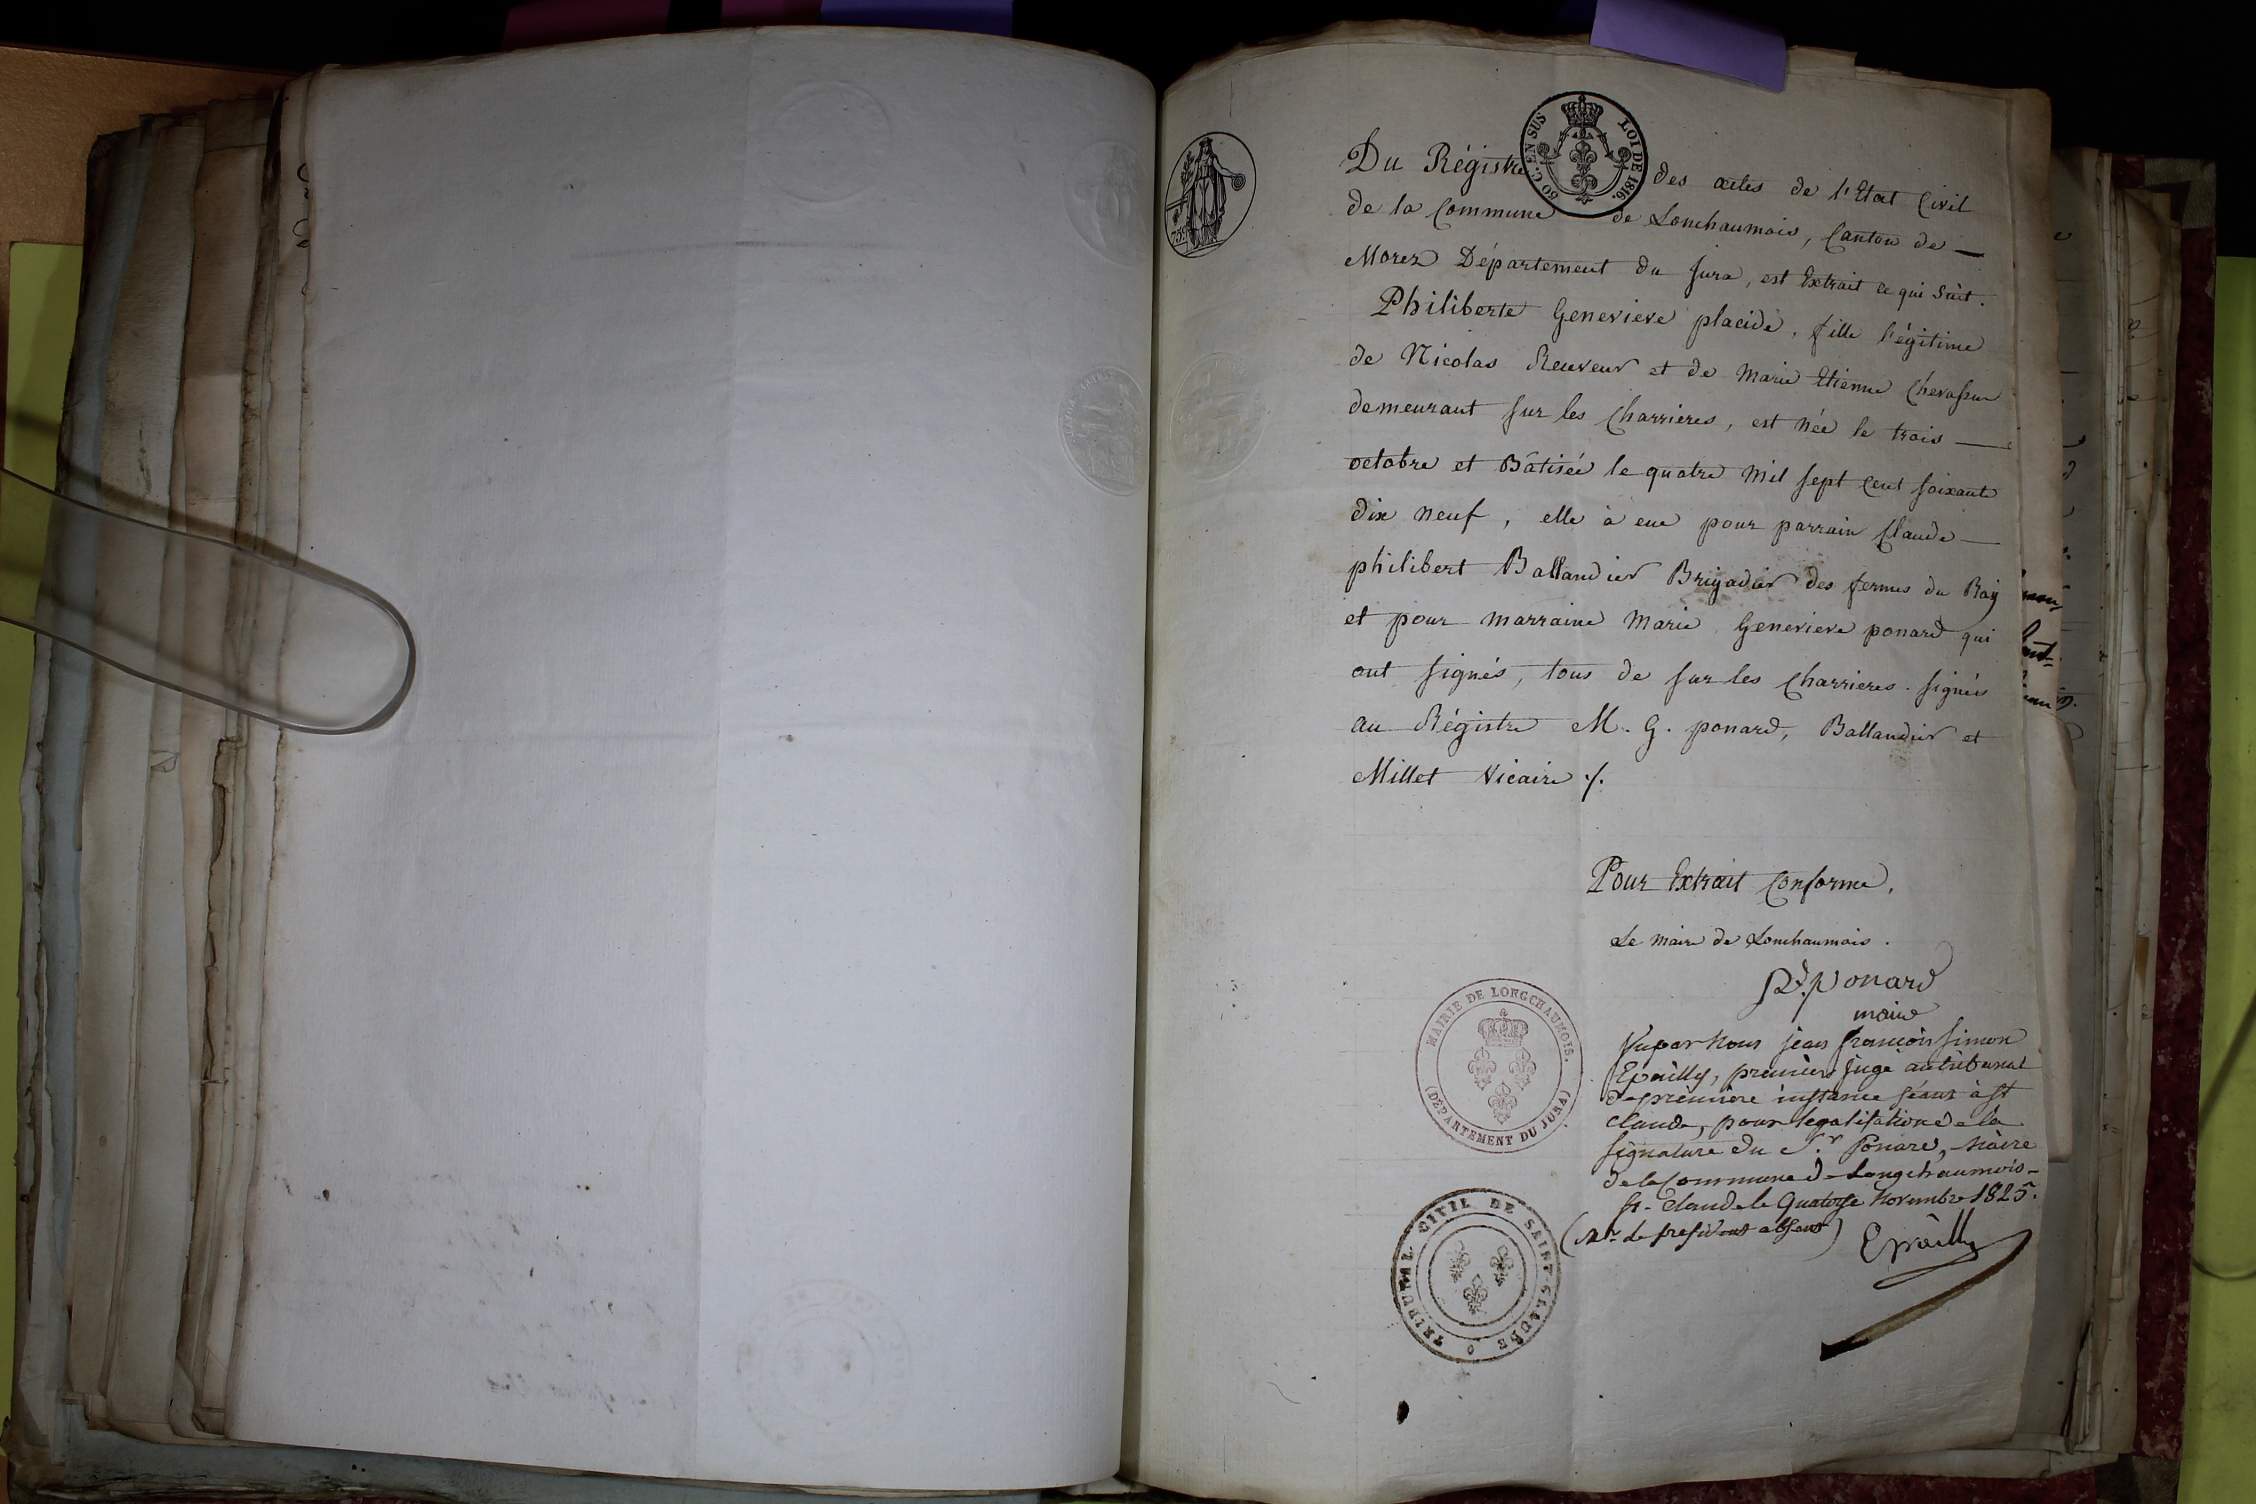 50 C. EN SUS LOI DE 1816.
75
Du Régistre des actes de l'Etat Civil
de la Commune de Lonchaumois, Canton de —
Morez Département du Jura, est Extrait ce qui Suit.
Philiberte Genevieve placide, fille légitime
de Nicolas Reuveur et de Marie Etienne Chevassu
demeurant sur les Charrieres, est Née le trois —
octobre et Bâtisée le quatre Mil sept Cent soixante
dix neuf, elle à eue pour parrain Claude —
philibert Ballandier Brigadier des fermes du Roy
et pour marraine Marie Genevieve ponard qui
ont signés, tous de sur les Charrieres. signés
au Régistre M. G. ponard, Ballandier et
Millet Vicaire ./.
Pour Extrait Conforme,
Le Maire de Lonchaumois.
ponard
maire
MAIRIE DE LONGCHAUMOIS.
(DÉPARTEMENT DU JURA)
Vu par Nous jean françois simon
Epailly, premier juge au tribunal
de première instance séant à st
claude, pour legalisation de la
signature du Sr. Ponard, Maire
de la Commune de Longchaumois -
St. Claude le Quatorze Novembre 1825.
(Mr. le president absent)
Epailly
TRIBUNAL CIVIL DE SAINT-CLAUDE